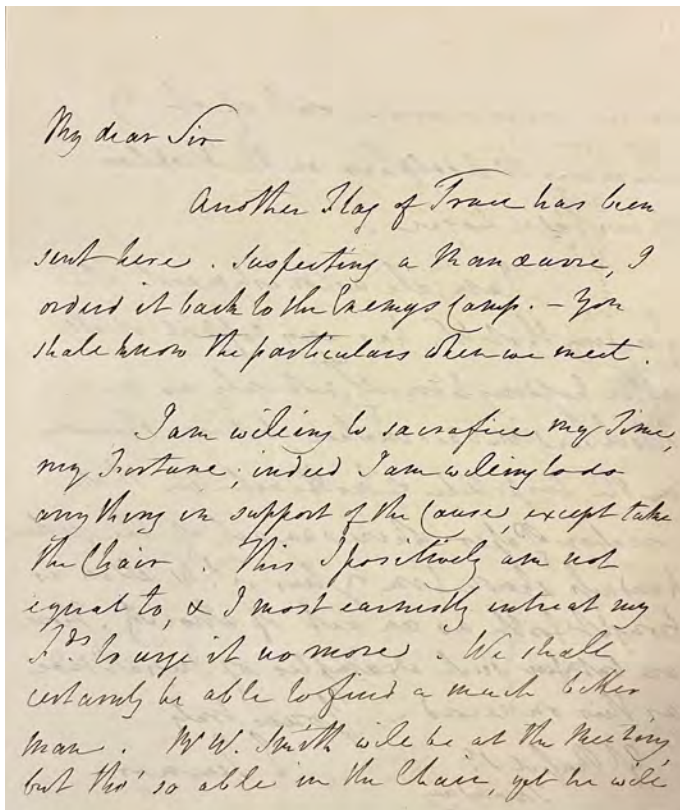 My dear Sir
Another Flag of Truce has been
sent here. Suspecting a Manœuvre, I
orderd it back to the Enemys Camp. – You
shall know the particulars when we meet.
I am willing to sacrafice my Time,
my Fortune; indeed I am willing to do
any thing in support of the Cause, except take
the Chair. This I positively am not
equal to, & I most earnestly intreat my
Fds to urge it no more. We shall
certainly be able to find a much better
man. Mr W. Smith will be at the Meeting
but tho' so able in the Chair, yet he will